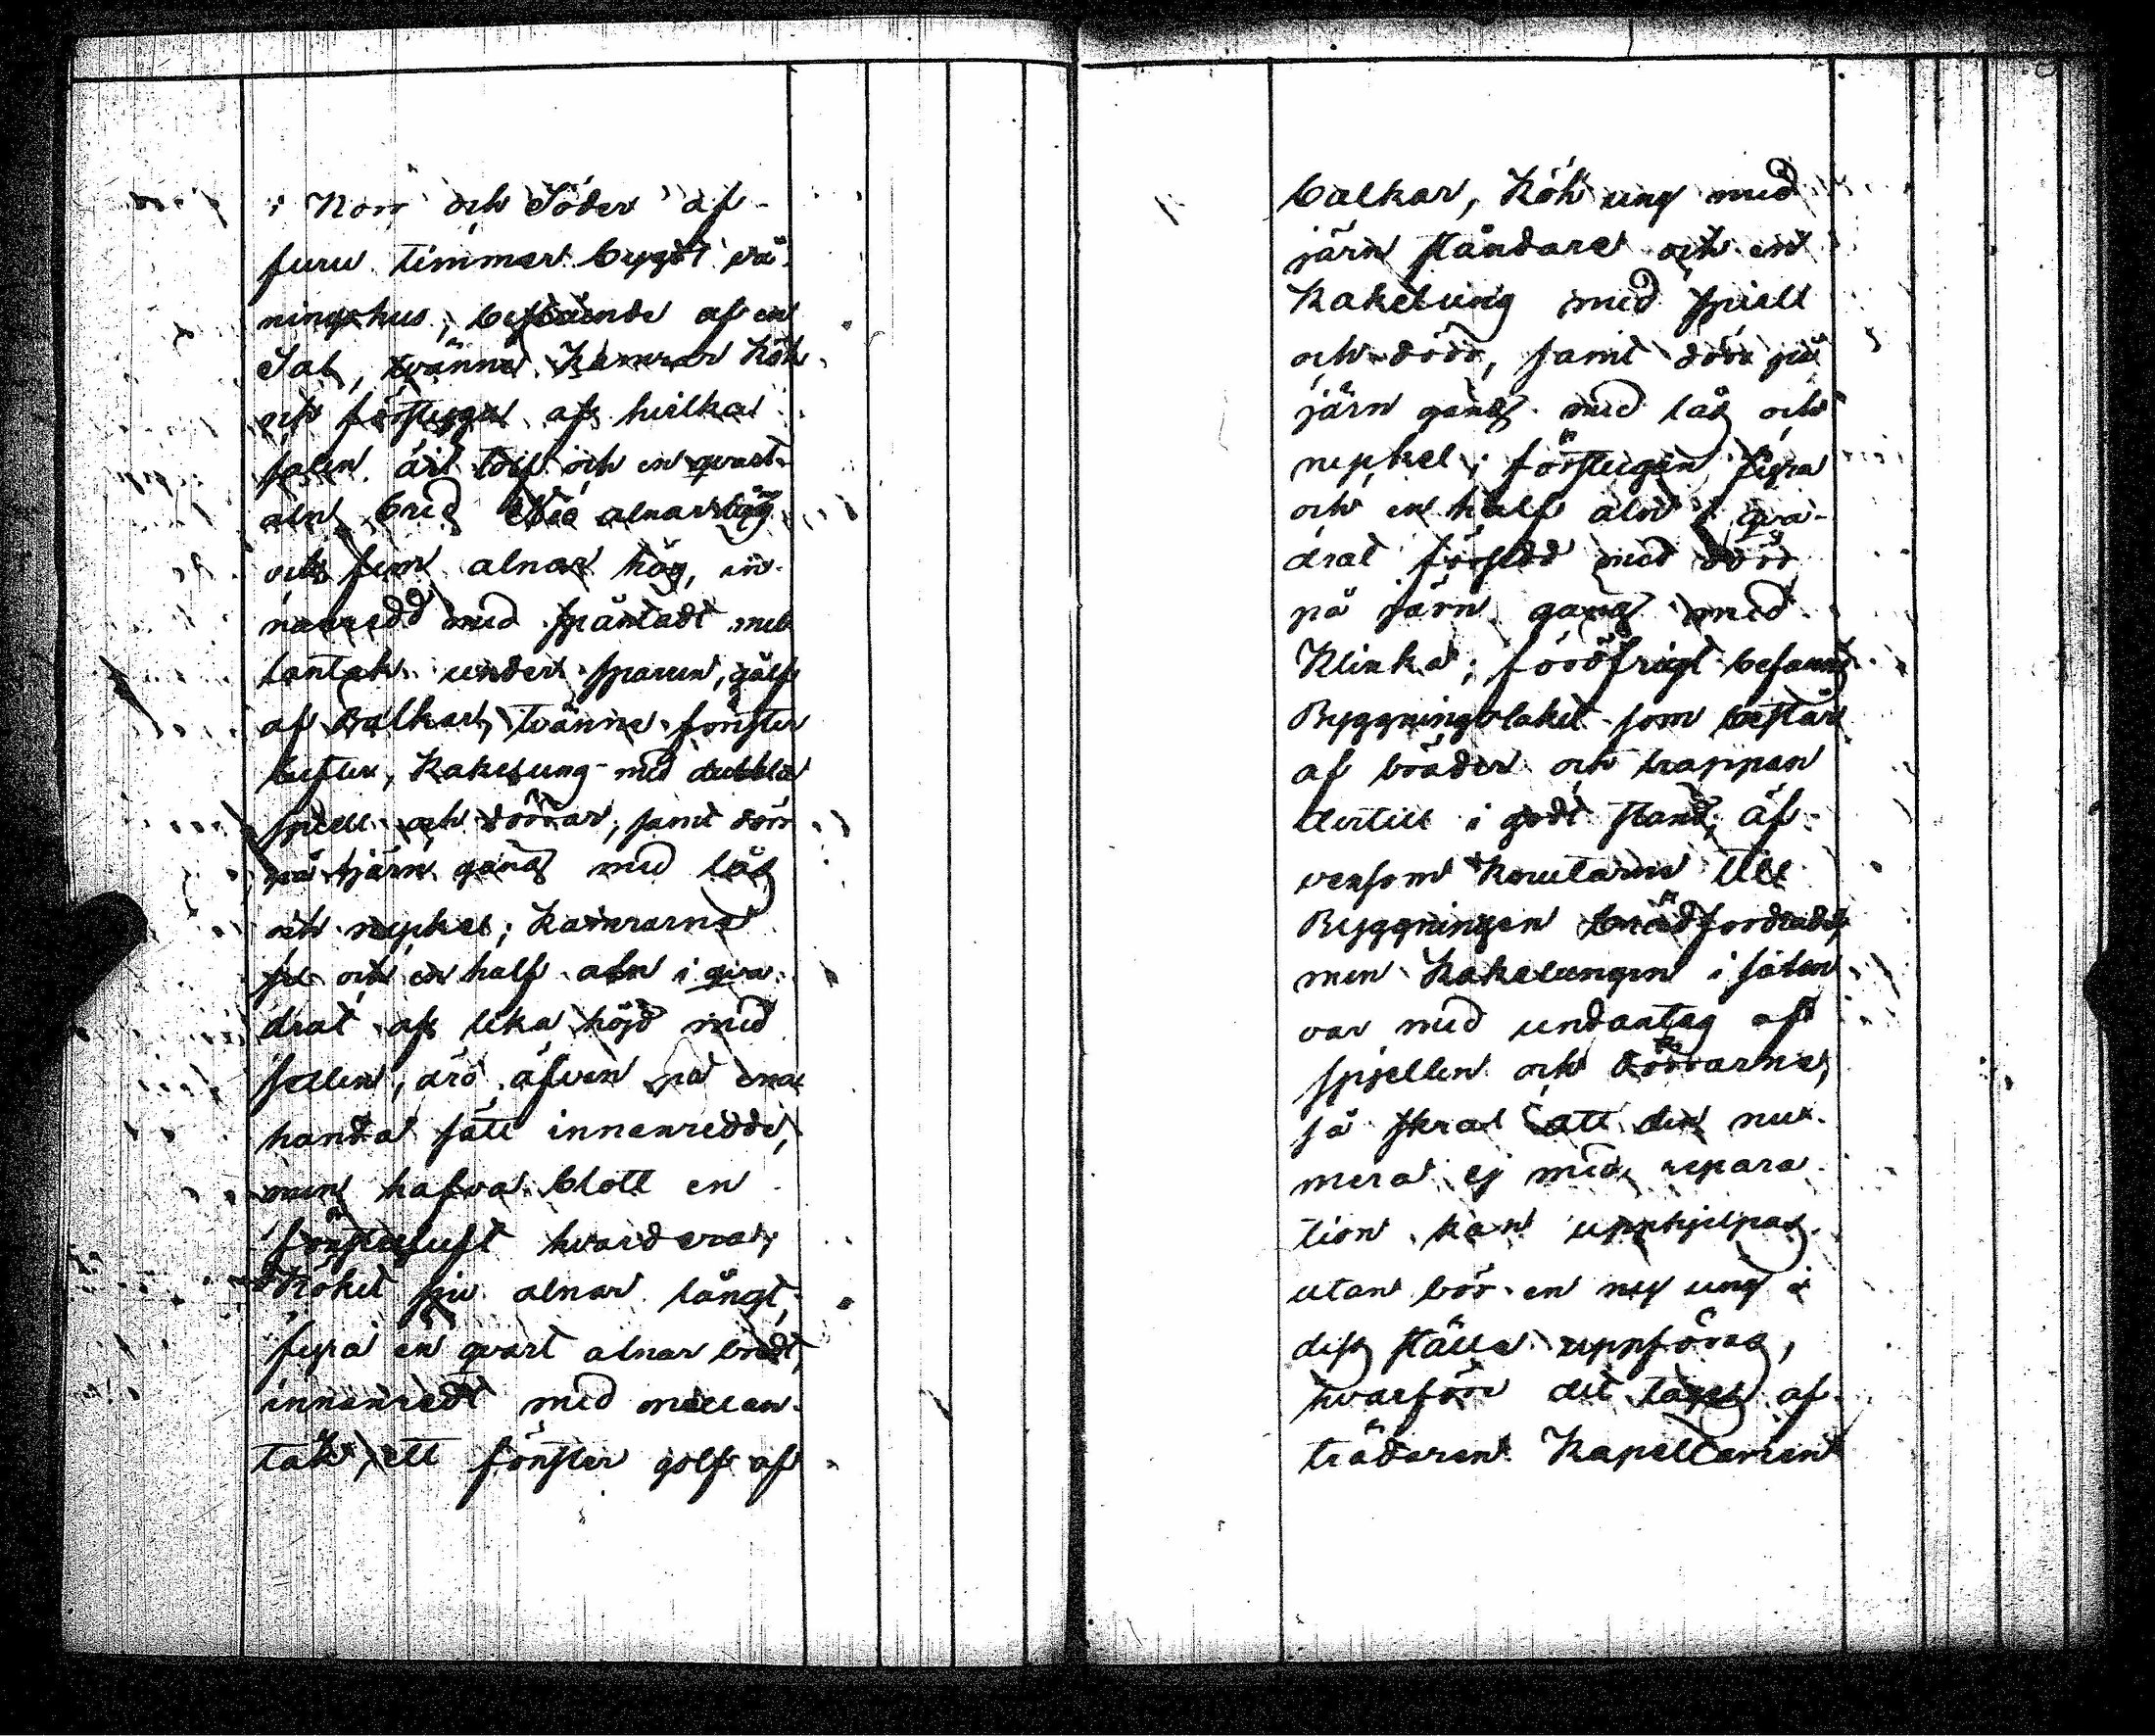 i Norr och Söder af
furu timmer bygdt vå-
ningshus, bestående af en
Sal, tvänne Kamrar Kök
och förstuga, af hvilka
salen är tolf och en qvart
aln bred alnar lång
och fem alnar hög, in-
naredd med spåntadt mel
lantak under sparun, golf
af Balkar, tvänne fönster
lufter, Kakelung med dubbla
spiell och dörrar, samt dörr
på hjärn gång med lås
och nyckel; Kamrarne
se och en half aln i qva-
drat af lika höjd med
salen, äro äfven på ena
handa sätt innanredde,
men hafva blott en
fönsterluft hvardera;
Köket sju alnar långt,
fyra en qvart alnar bredt,
innanredt med mellan-
tak, ett fönster golf af
balkar, Kök ung med
järn ståndare och en
Kakelung med spiell
och dörr, samt dörr på
järn gång med lås och
nyckel; förstugan fyra
och en half aln i qva-
drat försedd med dörr
på järn gång med
Klinka; föröfrigt befanns
Byggningstaket som består
af bräder och trappan
dertill i godt stand, äf-
vensom Knutarne till
Byggningen brädfordrade,
men Kakelungen i salen
var med undantag af
spjellen och dörrarne,
så skral att den nu-
mera ej med repara-
tion kan upphjelpas
utan bör en ny ung i
dess ställe uppföras,
hvarföre det af-
trädaren Kapellanen